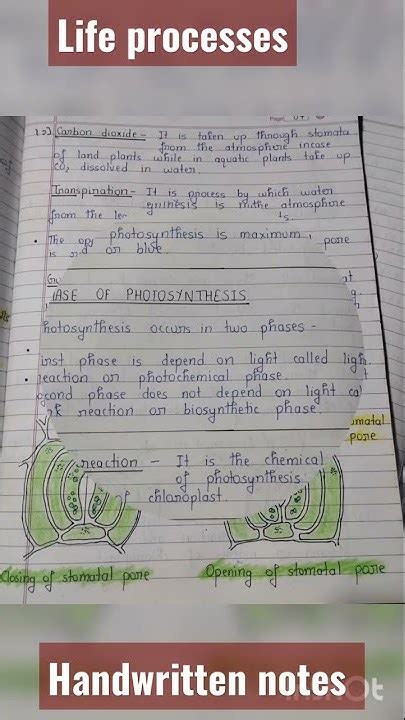 Life processes
Page
1.2) Carbon dioxide - It is taken up through stomata
from the atmosphere incase
of land plants while in aquatic plants take up
CO2 dissolved in water.
Transpiration - It is process by which water
from the atmosphere
The photosynthesis is maximum, pore
is or blue.
ASE OF PHOTOSYNTHESIS
hotosynthesis occurs in two phases -
irst phase is depend on light called ligh
reaction or photochemical phase.
econd phase does not depend on light ca
reaction or biosynthetic phase.
omatal
pore
reaction - It is the chemical
of photosynthesis
of chloroplast.
Closing of stomatal pore
Opening of stomatal pore
Handwritten notes